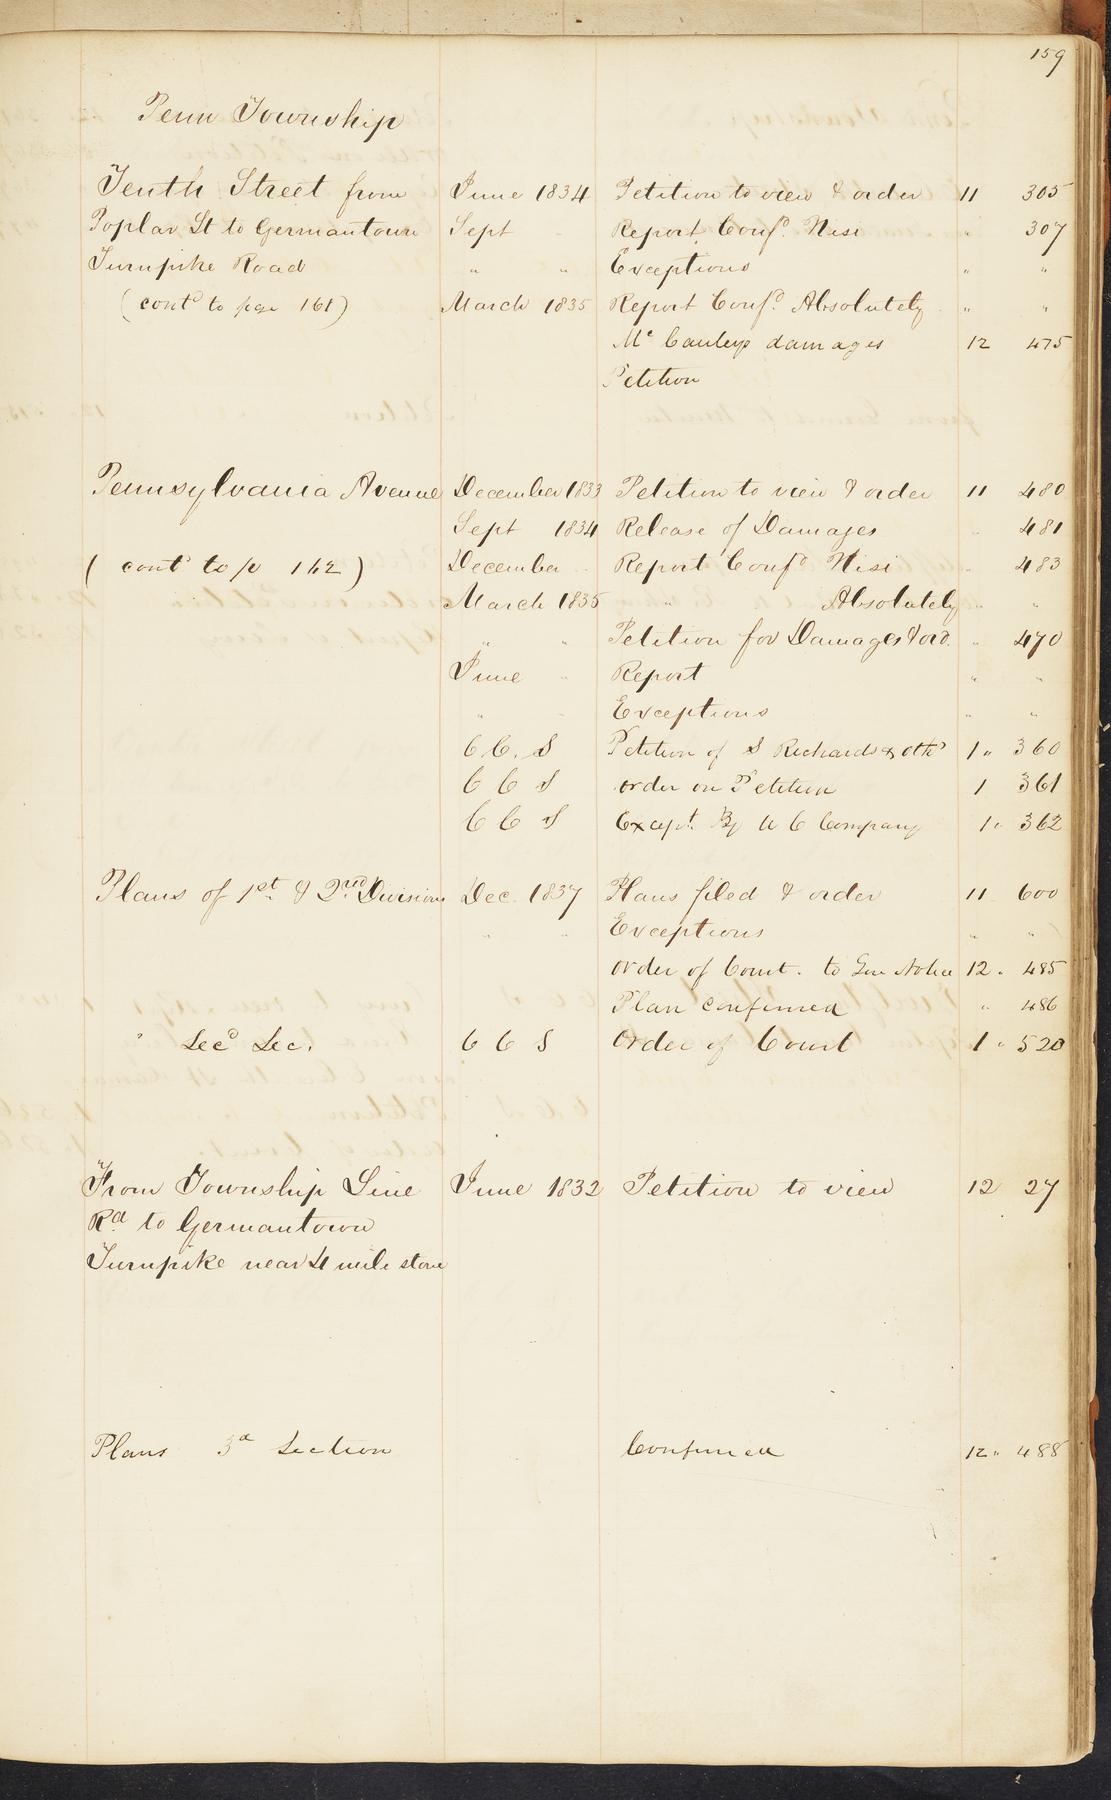 159
Penn Township
Tenth Street from June 1834 Petition to view & order 11 305
Poplar St to Germantown Sept " Report Conf.d Nisi " 307
Turnpike Road " " Exceptions " "
(cont.d to page 161) March 1835 Report Conf.d Absolutely " "
Mc Cauleys damages 12 475
Petition
Pennsylvania Avenue December 1833 Petition to view & order 11 480
Sept 1834 Release of Damages " 481
( cont.d to p 162 ) December " Report Conf.d Nisi " 483
March 1835 " " Absolutely " "
" " Petition for Damages & ord. " 470
June " Report " "
" " Exceptions " "
C C. S Petition of S Richards & oths 1 " 360
C C S order on Petition 1 361
C C S Except. By U C Company 1 " 362
Plans of 1st. & 2nd. Division Dec. 1837 Plans filed & order 11 600
" " Exceptions " "
order of Court. to Give Notice 12 " 485
Plan confirmed " 486
" Sec.d Sec. C C S Order of Court 1 " 520
From Township Line June 1832 Petition to view 12 27
R.d to Germantown
Turnpike near 4 mile stone
Plans 3d Section Confirmed 12 " 488